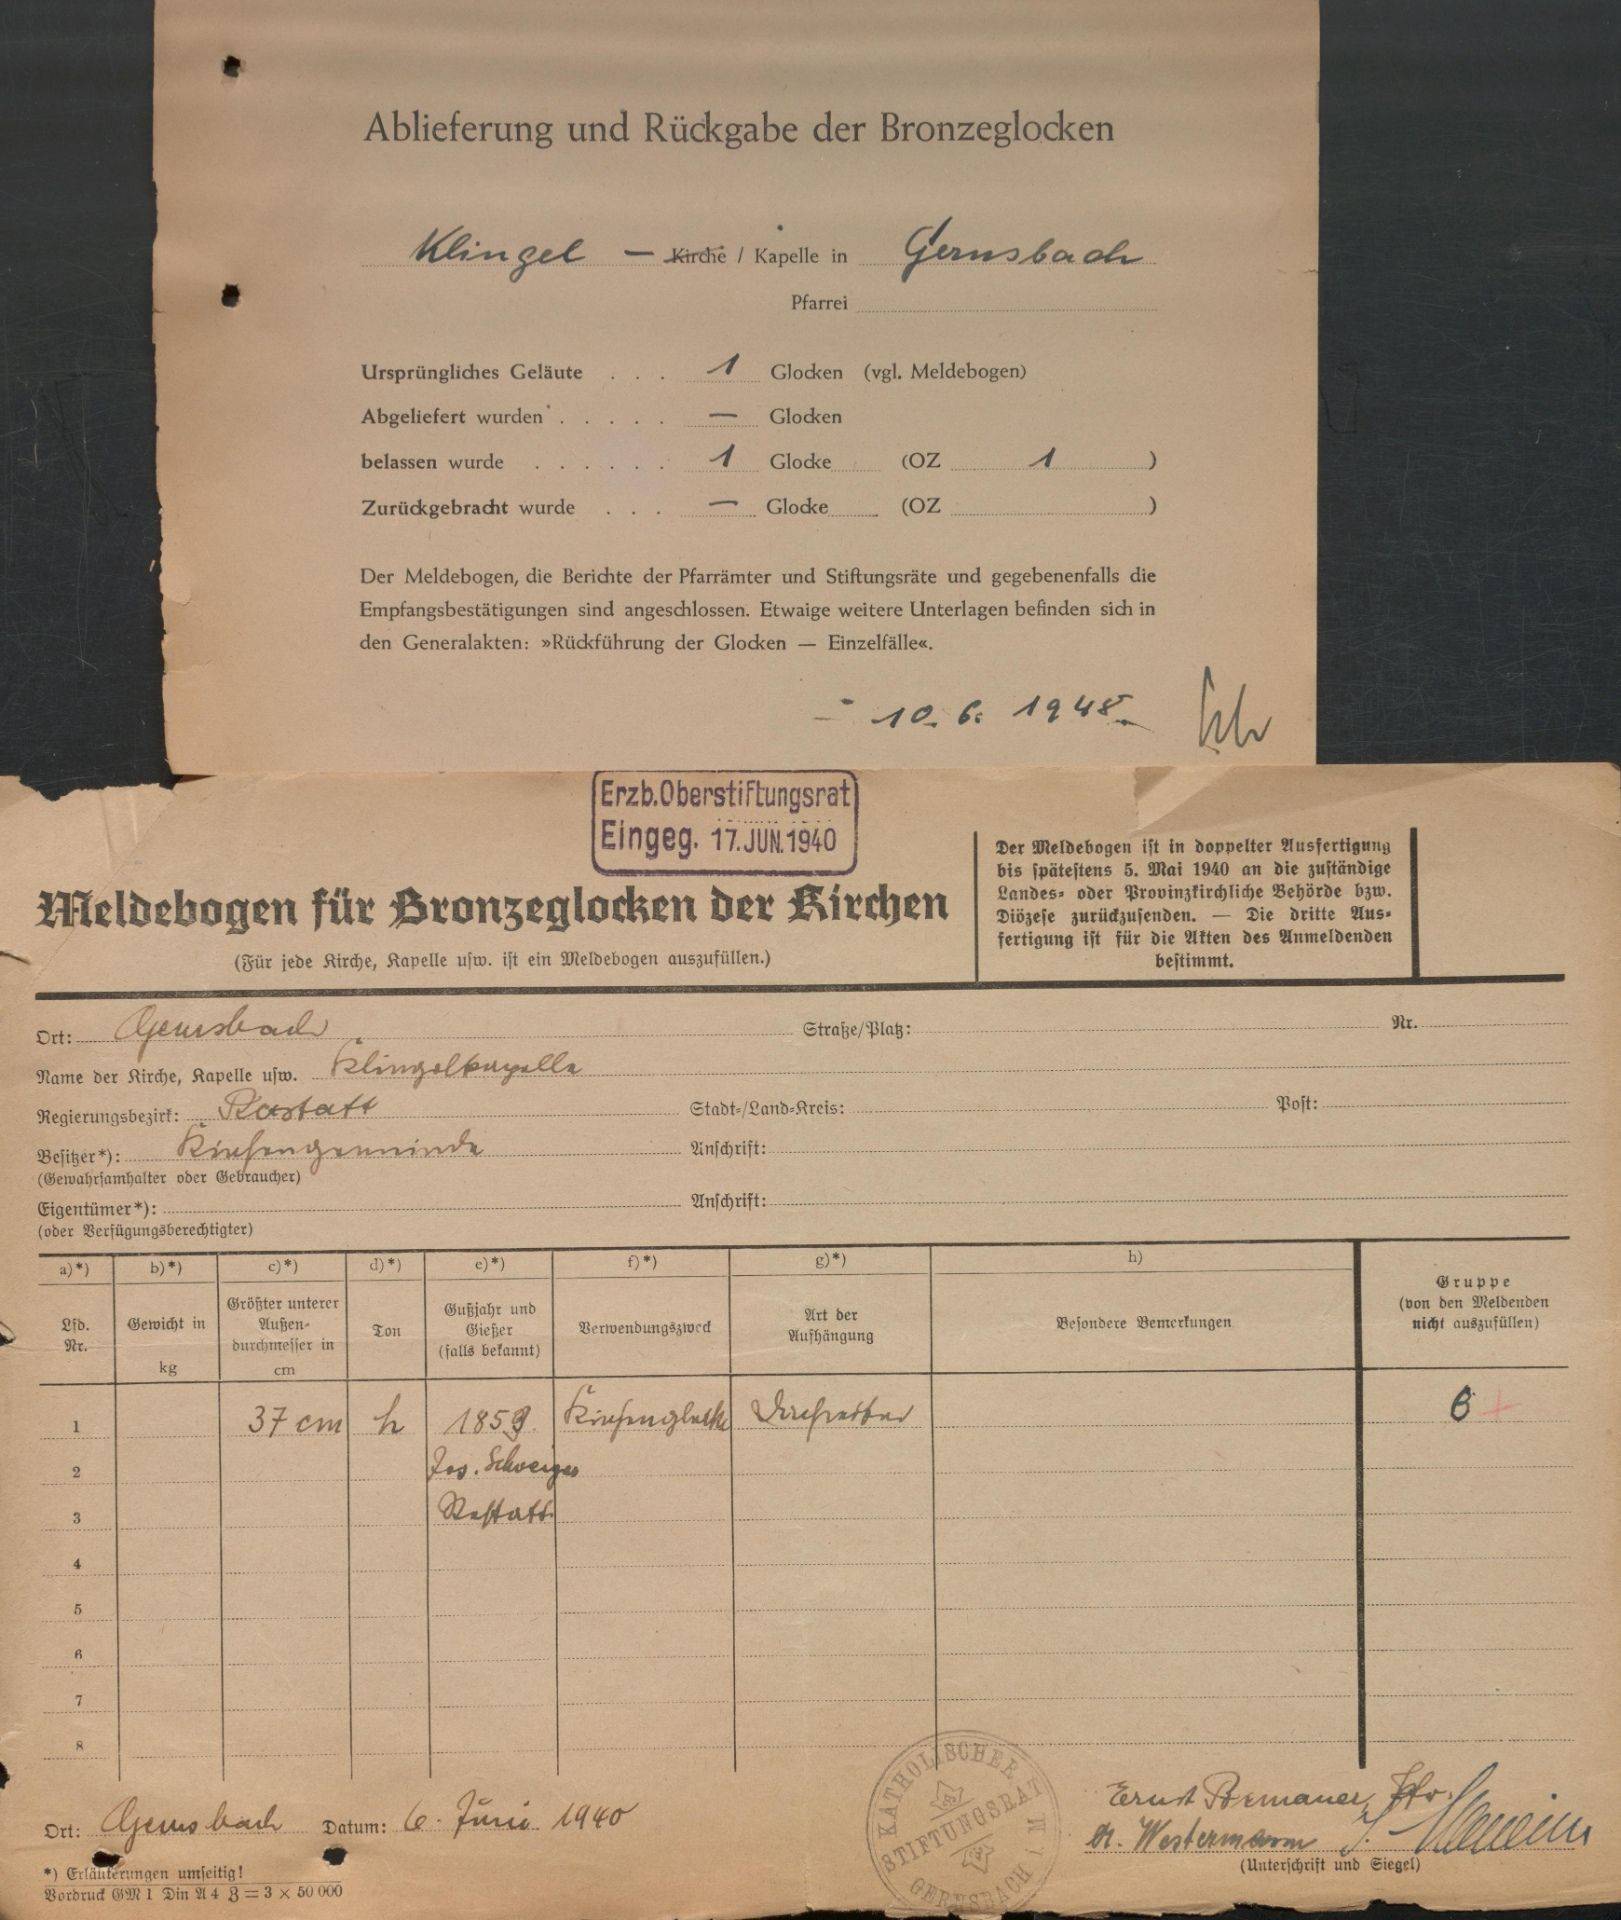 Ablieferung und Rückgabe der Bronzeglocken
Klingel – Kirche / Kapelle in Gernsbach
Pfarrei
Ursprüngliches Geläute . . . 1 Glocken (vgl. Meldebogen)
Abgeliefert wurden . . . . . — Glocken
belassen wurde . . . . . . 1 Glocke (OZ 1 )
Zurückgebracht wurde . . . — Glocke (OZ )
Der Meldebogen, die Berichte der Pfarrämter und Stiftungsräte und gegebenenfalls die
Empfangsbestätigungen sind angeschlossen. Etwaige weitere Unterlagen befinden sich in
den Generalakten: »Rückführung der Glocken — Einzelfälle«.
10. 6. 1948
Erzb. Oberstiftungsrat
Eingeg. 17. JUN. 1940
Meldebogen für Bronzeglocken der Kirchen
(Für jede Kirche, Kapelle usw. ist ein Meldebogen auszufüllen.)
Der Meldebogen ist in doppelter Ausfertigung
bis spätestens 5. Mai 1940 an die zuständige
Landes- oder Provinzkirchliche Behörde bzw.
Diözese zurückzusenden. — Die dritte Aus-
fertigung ist für die Akten des Anmeldenden
bestimmt.
Ort: Gernsbach Straße/Platz: Nr.
Name der Kirche, Kapelle usw. Klingelkapelle
Regierungsbezirk: Rastatt Stadt-/Land-Kreis: Post:
Besitzer*): Kirchengemeinde Anschrift:
(Gewahrsamhalter oder Gebraucher)
Eigentümer*): Anschrift:
(oder Verfügungsberechtigter)
a)*) b)*) c)*) d)*) e)*) f)*) g)*) h)
Lfd. Nr.
Gewicht in kg
Größter unterer Außen-durchmesser in cm
Ton
Gußjahr und Gießer (falls bekannt)
Verwendungszweck
Art der Aufhängung
Besondere Bemerkungen
Gruppe (von den Meldenden nicht auszufüllen)
1 37 cm h 1859. Kirchenglocke Dachreiter
2 Jos. Schweiger
3 Rastatt.
4
5
6
7
8
KATHOLISCHER STIFTUNGSRAT GERNSBACH
Ort: Gernsbach Datum: 6. Juni 1940
Ernst
A. Westermann
(Unterschrift und Siegel)
*) Erläuterungen umseitig!
Vordruck GM 1 Din A 4 3 = 3 × 50 000